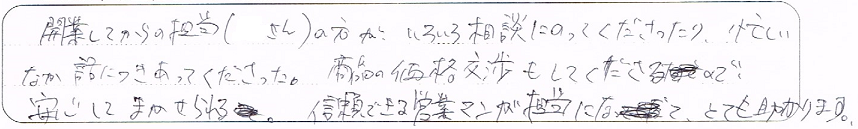 開業してからの担当( さん)の方が、いろいろ相談にのってくださったり、忙しい
なか話につきあってくださった。商品の価格交渉もしてくださるので
安心してまかせられる。信頼できる営業マンが担当になって、とても助かります。